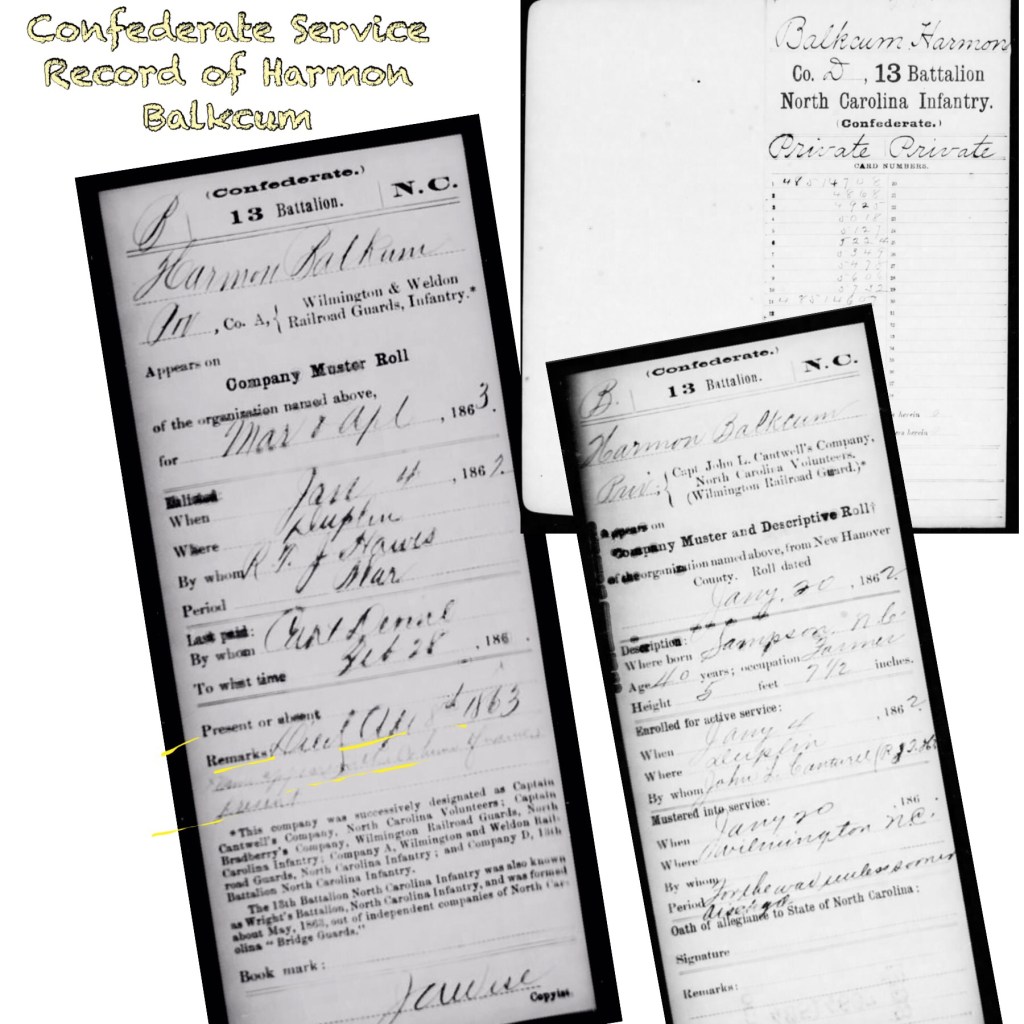 Confederate Service
Record of Harmon
Balkcum
(Confederate.)
B | 13 Battalion. | N.C.
Harmon Balkcum
Co. A, { Wilmington & Weldon
Railroad Guards, Infantry.*
Appears on
Company Muster Roll
of the organization named above,
for Mar & Apl , 1863.
Enlisted:
When Jan 4 , 1862
Where Duplin
By whom R. F. J Hawes
Period War
Last paid:
By whom Capt
To what time Feb 28 , 186
Present or absent
Remarks: Died 1863
present
*This company was successively designated as Captain
Cantwell's Company, North Carolina Volunteers; Captain
Bradberry's Company, Wilmington Railroad Guards, North
Carolina Infantry; Company A, Wilmington and Weldon Rail-
road Guards, North Carolina Infantry; and Company D, 13th
Battalion North Carolina Infantry.
The 13th Battalion North Carolina Infantry was also known
as Wright's Battalion, North Carolina Infantry, and was formed
about May, 1863, out of independent companies of North Car-
olina "Bridge Guards."
Book mark:
Copyist.
Balkcum Harmon
Co. D, 13 Battalion
North Carolina Infantry.
(Confederate.)
Private Private
CARD NUMBERS.
(Confederate.)
B. | 13 Battalion. | N.C.
Harmon Balkcum
Priv.; { Capt John L. Cantwell's Company,
North Carolina Volunteers.
(Wilmington Railroad Guard.)*
Appears on
Company Muster and Descriptive Roll†
of the organization named above, from New Hanover
County. Roll dated
Jany. 20 , 1862
Description:
Where born Sampson N.C.
Age 40 years; occupation Farmer
Height 5 feet 7 1/2 inches.
Enrolled for active service:
When Jany 4 , 1862
Where Duplin
By whom John L. Cantwell
Mustered into service:
When Jany 20 , 186
Where Wilmington N.C.
By whom
Period For the war unless sooner
Oath of allegiance to State of North Carolina:
Signature
Remarks: